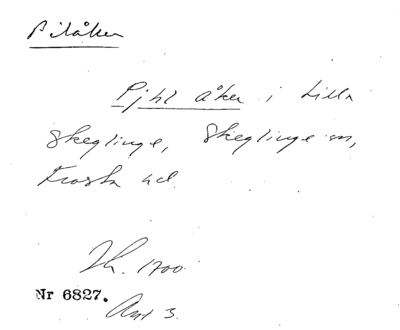 Pilåker
Pjhl åker i Lilla
Skeglinge, Skeglinge sn,
Frosta hd.
Jb. 1700
Nr 6827.
Avs 3.